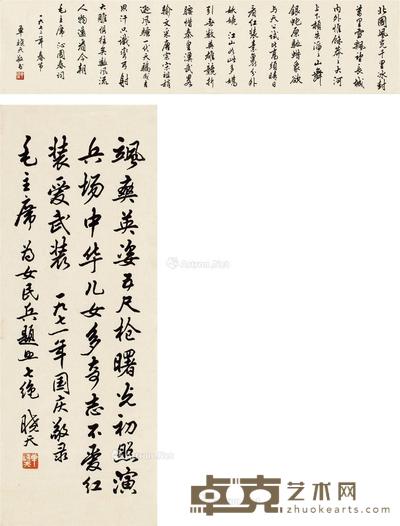 北国风光千里冰封
万里雪飘望长城
内外惟馀莽莽大河
上下顿失滔滔山舞
银蛇原驰蜡象欲
与天公试比高须晴日
看红装素裹分外
妖娆江山如此多娇
引无数英雄竞折
腰惜秦皇汉武略
输文采唐宗宋祖稍
逊风骚一代天骄成吉
思汗只识弯弓射
大雕俱往矣数风流
人物还看今朝
毛主席沁园春词
一九七二年春节
飒爽英姿五尺枪曙光初照演
兵场中华儿女多奇志不爱红
装爱武装 一九七一年国庆敬录
毛主席为女民兵题照七绝 晓天
卓克艺术网